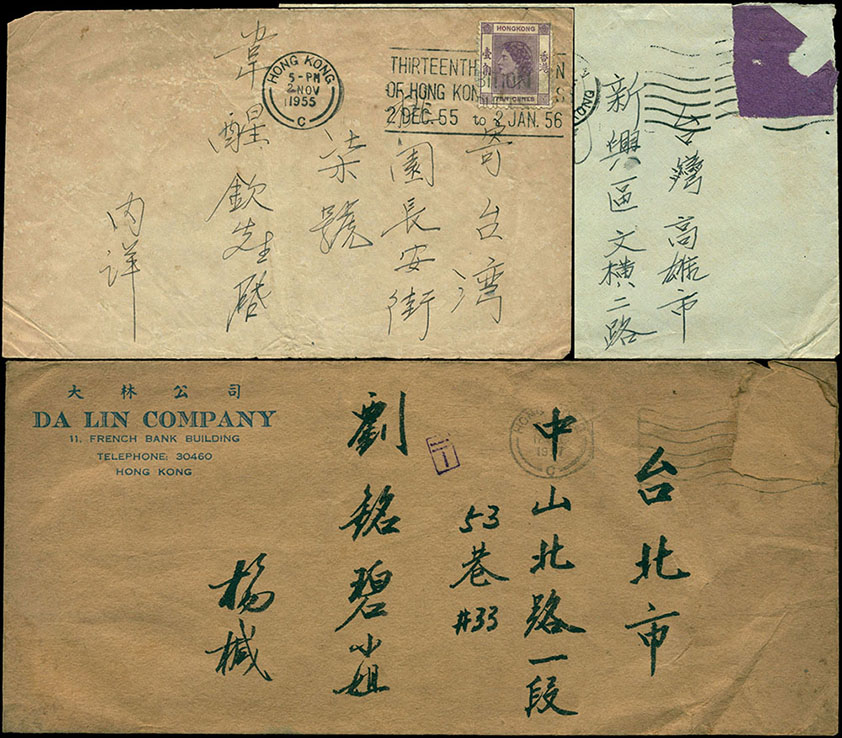 HONG KONG
5-PM
2 NOV
1955
C
THIRTEENTH
OF HONG KONG
2 DEC. 55 to 2 JAN. 56
HONGKONG
香港
TEN CENTS
寄台湾
園長安街
柒號
醒欽先生啓
內詳
台灣高雄市
新興區文橫二路
大林公司
DA LIN COMPANY
11, FRENCH BANK BUILDING
TELEPHONE: 30460
HONG KONG
台北市
中山北路一段
53巷#33
劉銘碧小姐
楊椷